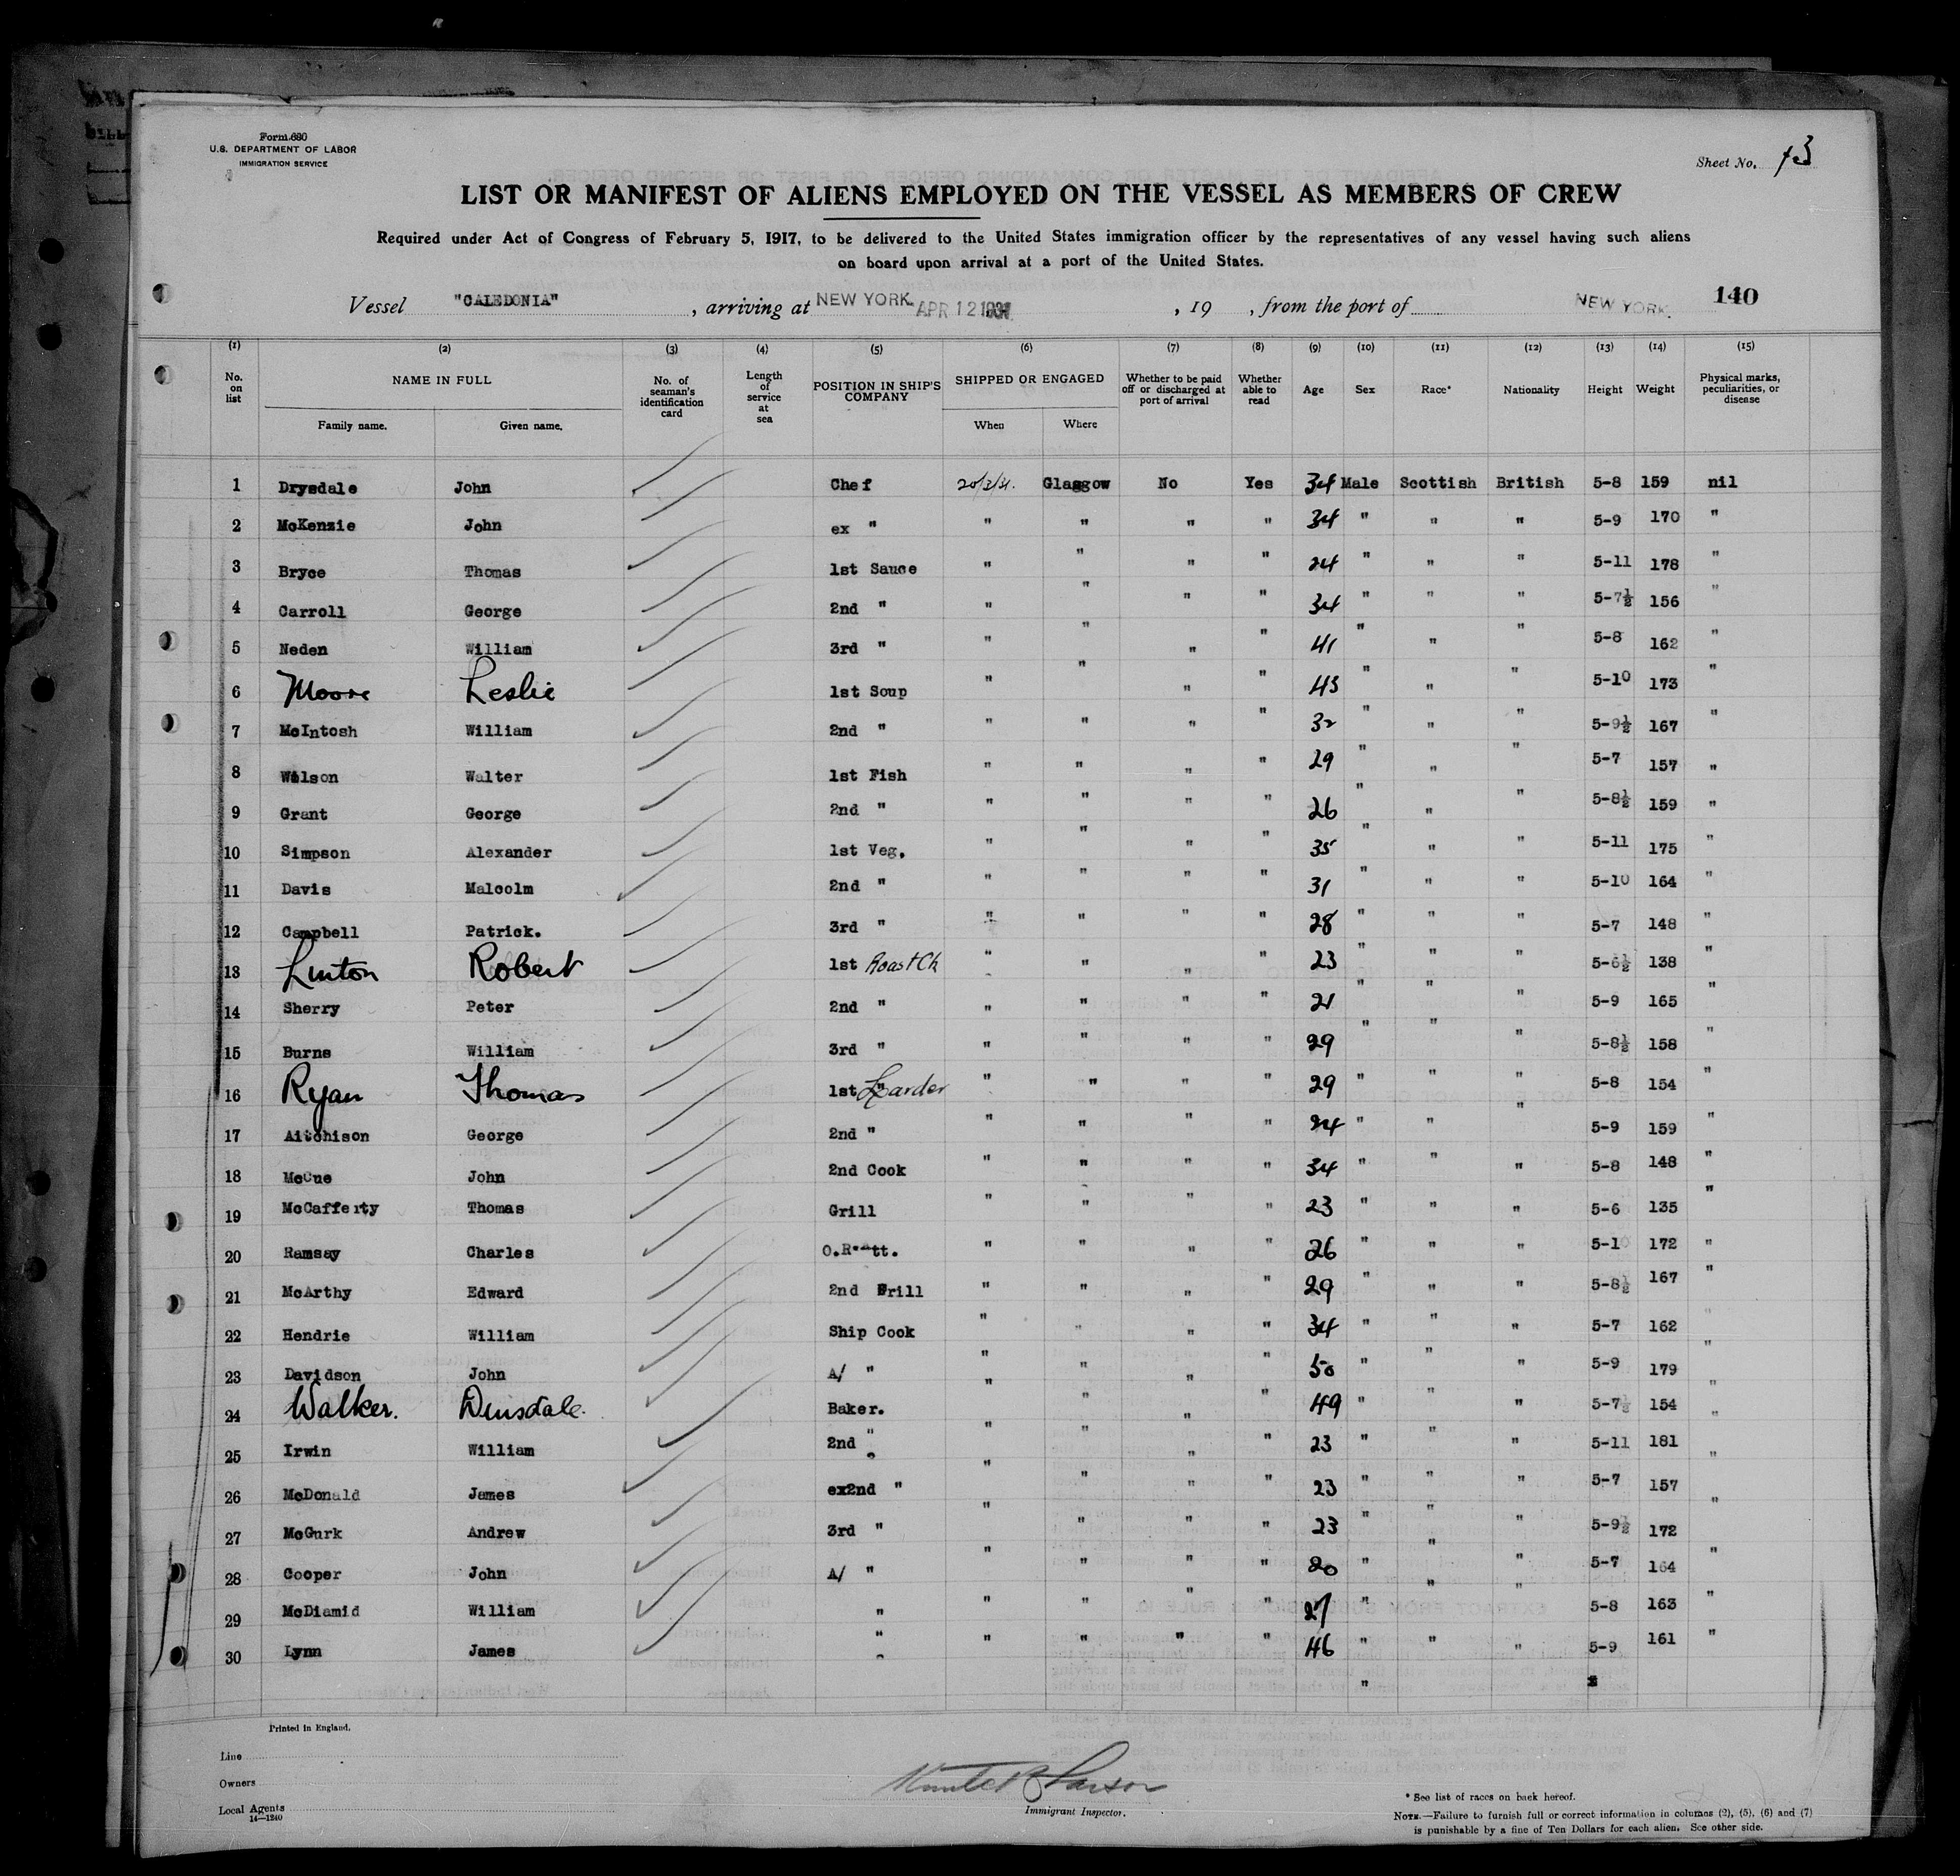 Form 680
U.S. DEPARTMENT OF LABOR
IMMIGRATION SERVICE
Sheet No. 13
LIST OR MANIFEST OF ALIENS EMPLOYED ON THE VESSEL AS MEMBERS OF CREW
Required under Act of Congress of February 5, 1917, to be delivered to the United States immigration officer by the representatives of any vessel having such aliens
on board upon arrival at a port of the United States.
Vessel "CALEDONIA", arriving at NEW YORK. APR 12 1931, 19 , from the port of NEW YORK. 140
(1) (2) (3) (4) (5) (6) (7) (8) (9) (10) (11) (12) (13) (14) (15)
No. on list NAME IN FULL Family name. Given name. No. of seaman's identification card Length of service at sea POSITION IN SHIP'S COMPANY SHIPPED OR ENGAGED When Where Whether to be paid off or discharged at port of arrival Whether able to read Age Sex Race* Nationality Height Weight Physical marks, peculiarities, or disease
1 Drysdale John Chef 20/3/31. Glasgow No Yes 34 Male Scottish British 5-8 159 nil
2 McKenzie John ex " " " " " 34 " " " 5-9 170 "
3 Bryce Thomas 1st Sauce " " " " 24 " " " 5-11 178 "
4 Carroll George 2nd " " " " " 34 " " " 5-7½ 156 "
5 Neden William 3rd " " " " " 41 " " " 5-8 162 "
6 Moore Leslie 1st Soup " " " " 43 " " " 5-10 173 "
7 McIntosh William 2nd " " " " " 32 " " " 5-9½ 167 "
8 Wilson Walter 1st Fish " " " " 29 " " " 5-7 157 "
9 Grant George 2nd " " " " " 26 " " " 5-8½ 159 "
10 Simpson Alexander 1st Veg. " " " " 35 " " " 5-11 175 "
11 Davis Malcolm 2nd " " " " " 31 " " " 5-10 164 "
12 Campbell Patrick. 3rd " " " " " 28 " " " 5-7 148 "
13 Linton Robert 1st Roast Ck " " " " 23 " " " 5-6½ 138 "
14 Sherry Peter 2nd " " " " " 21 " " " 5-9 165 "
15 Burns William 3rd " " " " " 29 " " " 5-8½ 158 "
16 Ryan Thomas 1st Larder " " " " 29 " " " 5-8 154 "
17 Aitchison George 2nd " " " " " 24 " " " 5-9 159 "
18 McCue John 2nd Cook " " " " 34 " " " 5-8 148 "
19 McCafferty Thomas Grill " " " " 23 " " " 5-6 135 "
20 Ramsay Charles " " " " 26 " " " 5-10 172 "
21 McArthy Edward 2nd Grill " " " " 29 " " " 5-8½ 167 "
22 Hendrie William Ship Cook " " " " 34 " " " 5-7 162 "
23 Davidson John A/ " " " " " 50 " " " 5-9 179 "
24 Walker. Dinsdale. Baker. " " " " 49 " " " 5-7½ 154 "
25 Irwin William 2nd " " " " " 23 " " " 5-11 181 "
26 McDonald James ex2nd " " " " " 23 " " " 5-7 157 "
27 McGurk Andrew 3rd " " " " " 23 " " " 5-9½ 172 "
28 Cooper John A/ " " " " " 20 " " " 5-7 164 "
29 McDiamid William " " " " " 27 " " " 5-8 163 "
30 Lynn James " " " " " 46 " " " 5-9 161 "
Printed in England.
Line
Owners
Local Agents
14—1240
Immigrant Inspector.
* See list of races on back hereof.
NOTE.—Failure to furnish full or correct information in columns (2), (5), (6) and (7)
is punishable by a fine of Ten Dollars for each alien. See other side.